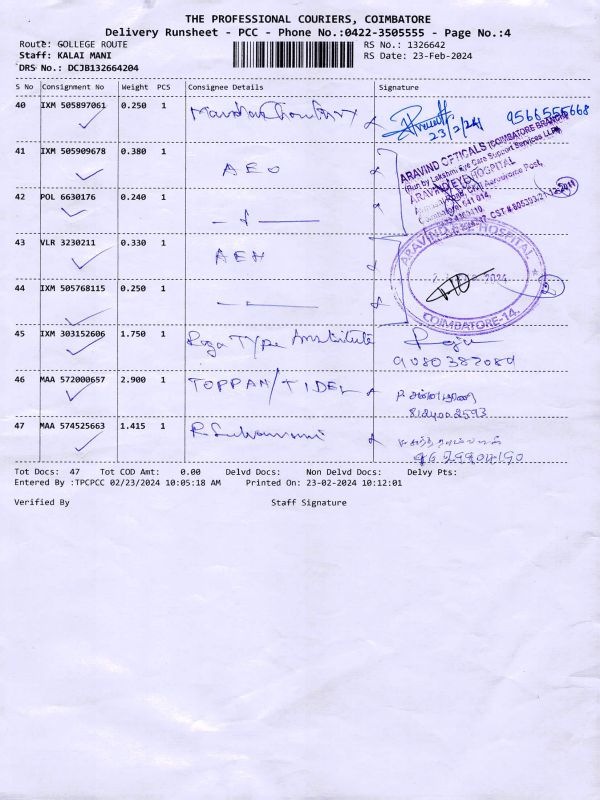 THE PROFESSIONAL COURIERS, COIMBATORE
Delivery Runsheet - PCC - Phone No.:0422-3505555 - Page No.:4
Route: GOLLEGE ROUTE
RS No.: 1326642
Staff: KALAI MANI
RS Date: 23-Feb-2024
DRS No.: DCJB132664204
S No Consignment No Weight PCS Consignee Details Signature
40 IXM 505897061 0.250 1
23/2/24 9566555668
41 IXM 505909678 0.380 1 AEO
ARAVIND OPTICALS (COIMBATORE BRANCH)
(Run by Lakshmi Eye Care Support Services LLP)
ARAVIND EYE HOSPITAL
Coimbatore 641 014.
42 POL 6630176 0.240 1
43 VLR 3230211 0.330 1 AEH
ARAVIND EYE HOSPITAL
2024
COIMBATORE-14.
44 IXM 505768115 0.250 1
45 IXM 303152606 1.750 1 Type Institute Raju
9080382089
46 MAA 572000657 2.900 1 TOPPAN/TIDEL
8124002593
47 MAA 574525663 1.415 1
Tot Docs: 47 Tot COD Amt: 0.00 Delvd Docs: Non Delvd Docs: Delvy Pts:
Entered By :TPCPCC 02/23/2024 10:05:18 AM Printed On: 23-02-2024 10:12:01
Verified By Staff Signature